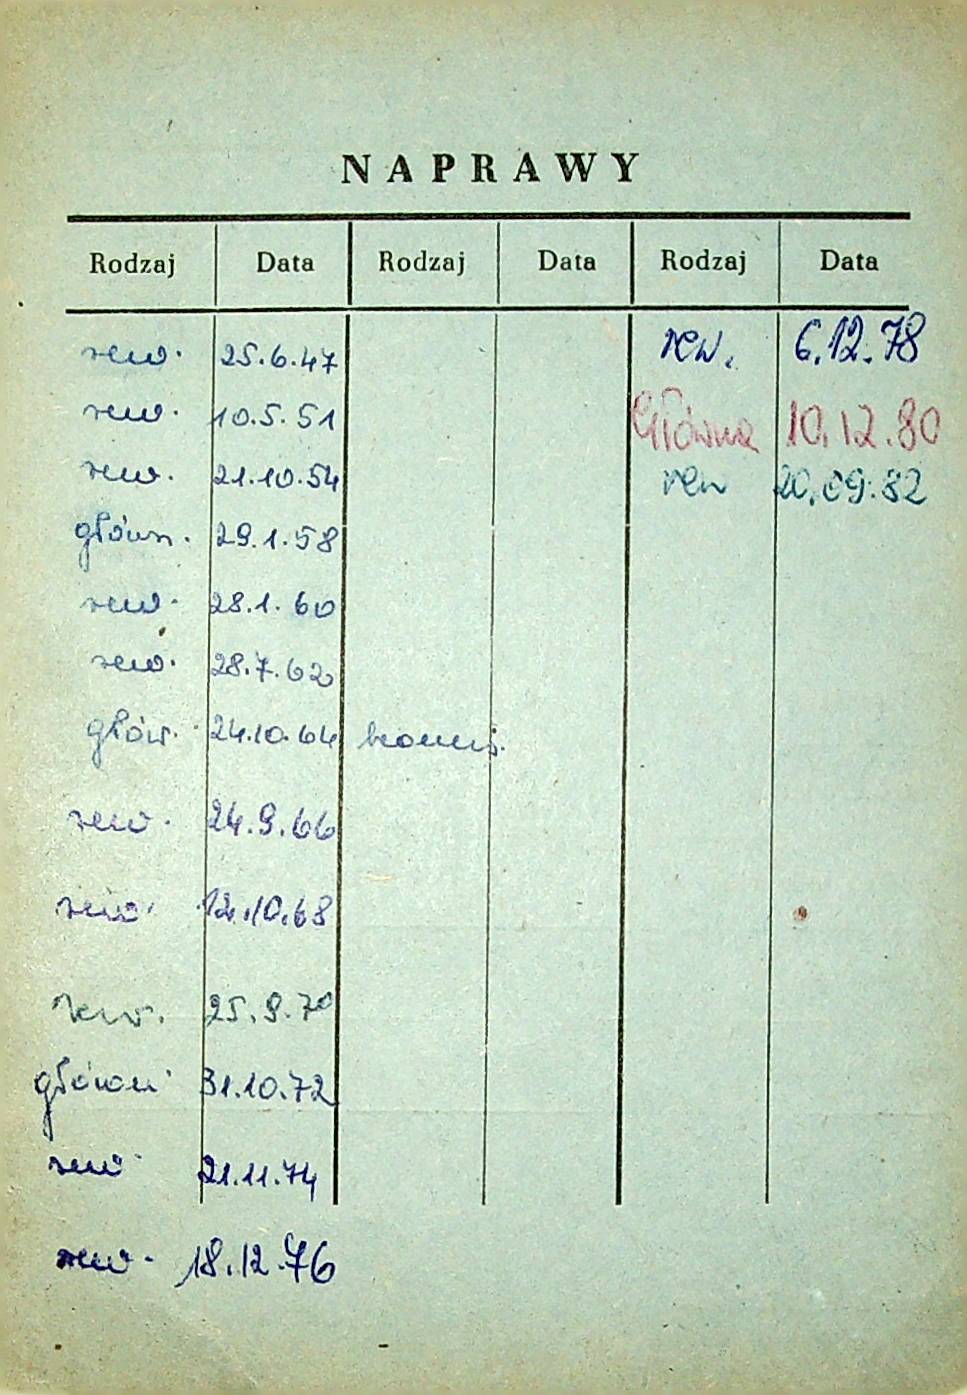 NAPRAWY
Rodzaj Data Rodzaj Data Rodzaj Data
rew. 25.6.47 rew. 6.12.78
rew. 10.5.51 Główna 10.12.80
rew. 21.10.54 rew 20.09.82
główn. 29.1.58
rew. 28.1.60
rew. 28.7.62
głów. 24.10.64
rew. 24.9.66
rew. 12.10.68
rew. 25.9.70
31.10.72
rew. 21.11.74
rew. 18.12.76